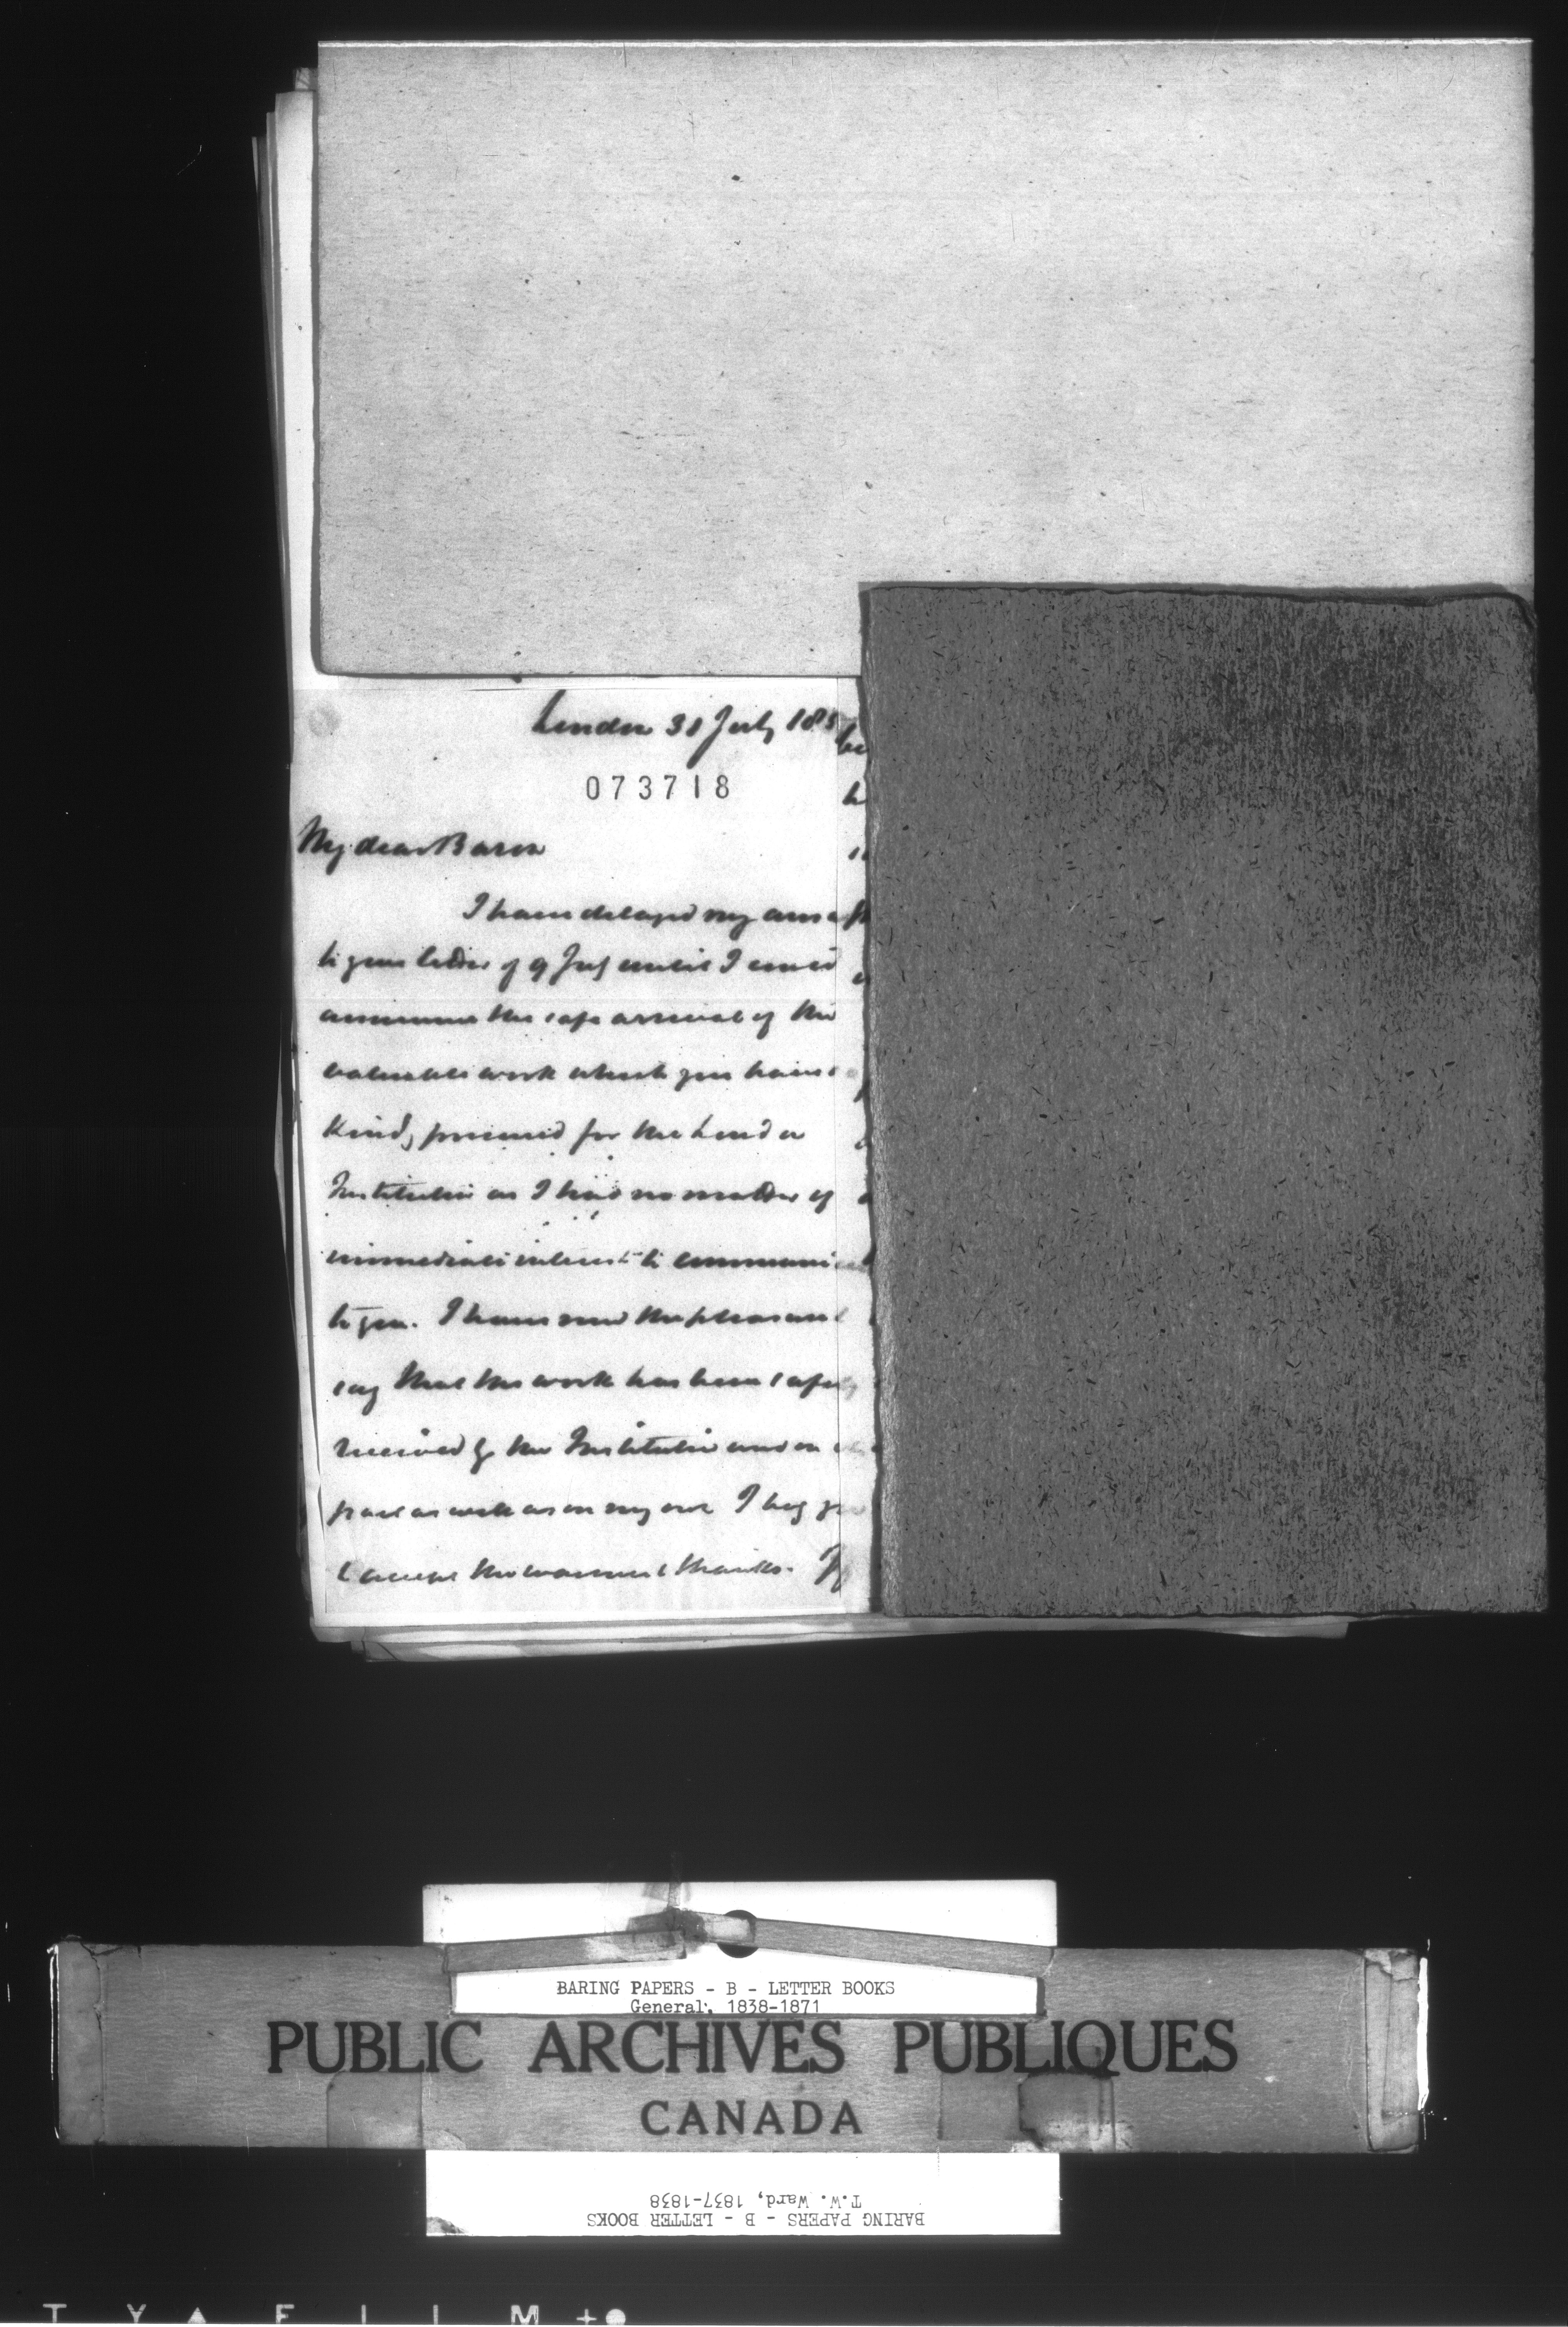 London 31 July 185
073718
My dear Baron
I have delayed my answ
to your letter of 9 July until I could
announce the safe arrival of the
valuable work which you have
kindly procured for the London
Institution as I had no matter of
immediate interest to communi
to you. I have now the pleasure
say that the work has been safely
received by the Institution and on
part as well as on my own I beg you
accept the warmest thanks.
BARING PAPERS - B - LETTER BOOKS
General, 1838-1871
PUBLIC ARCHIVES PUBLIQUES
CANADA
T.W. Ward, 1837-1838
BARING PAPERS - B - LETTER BOOKS